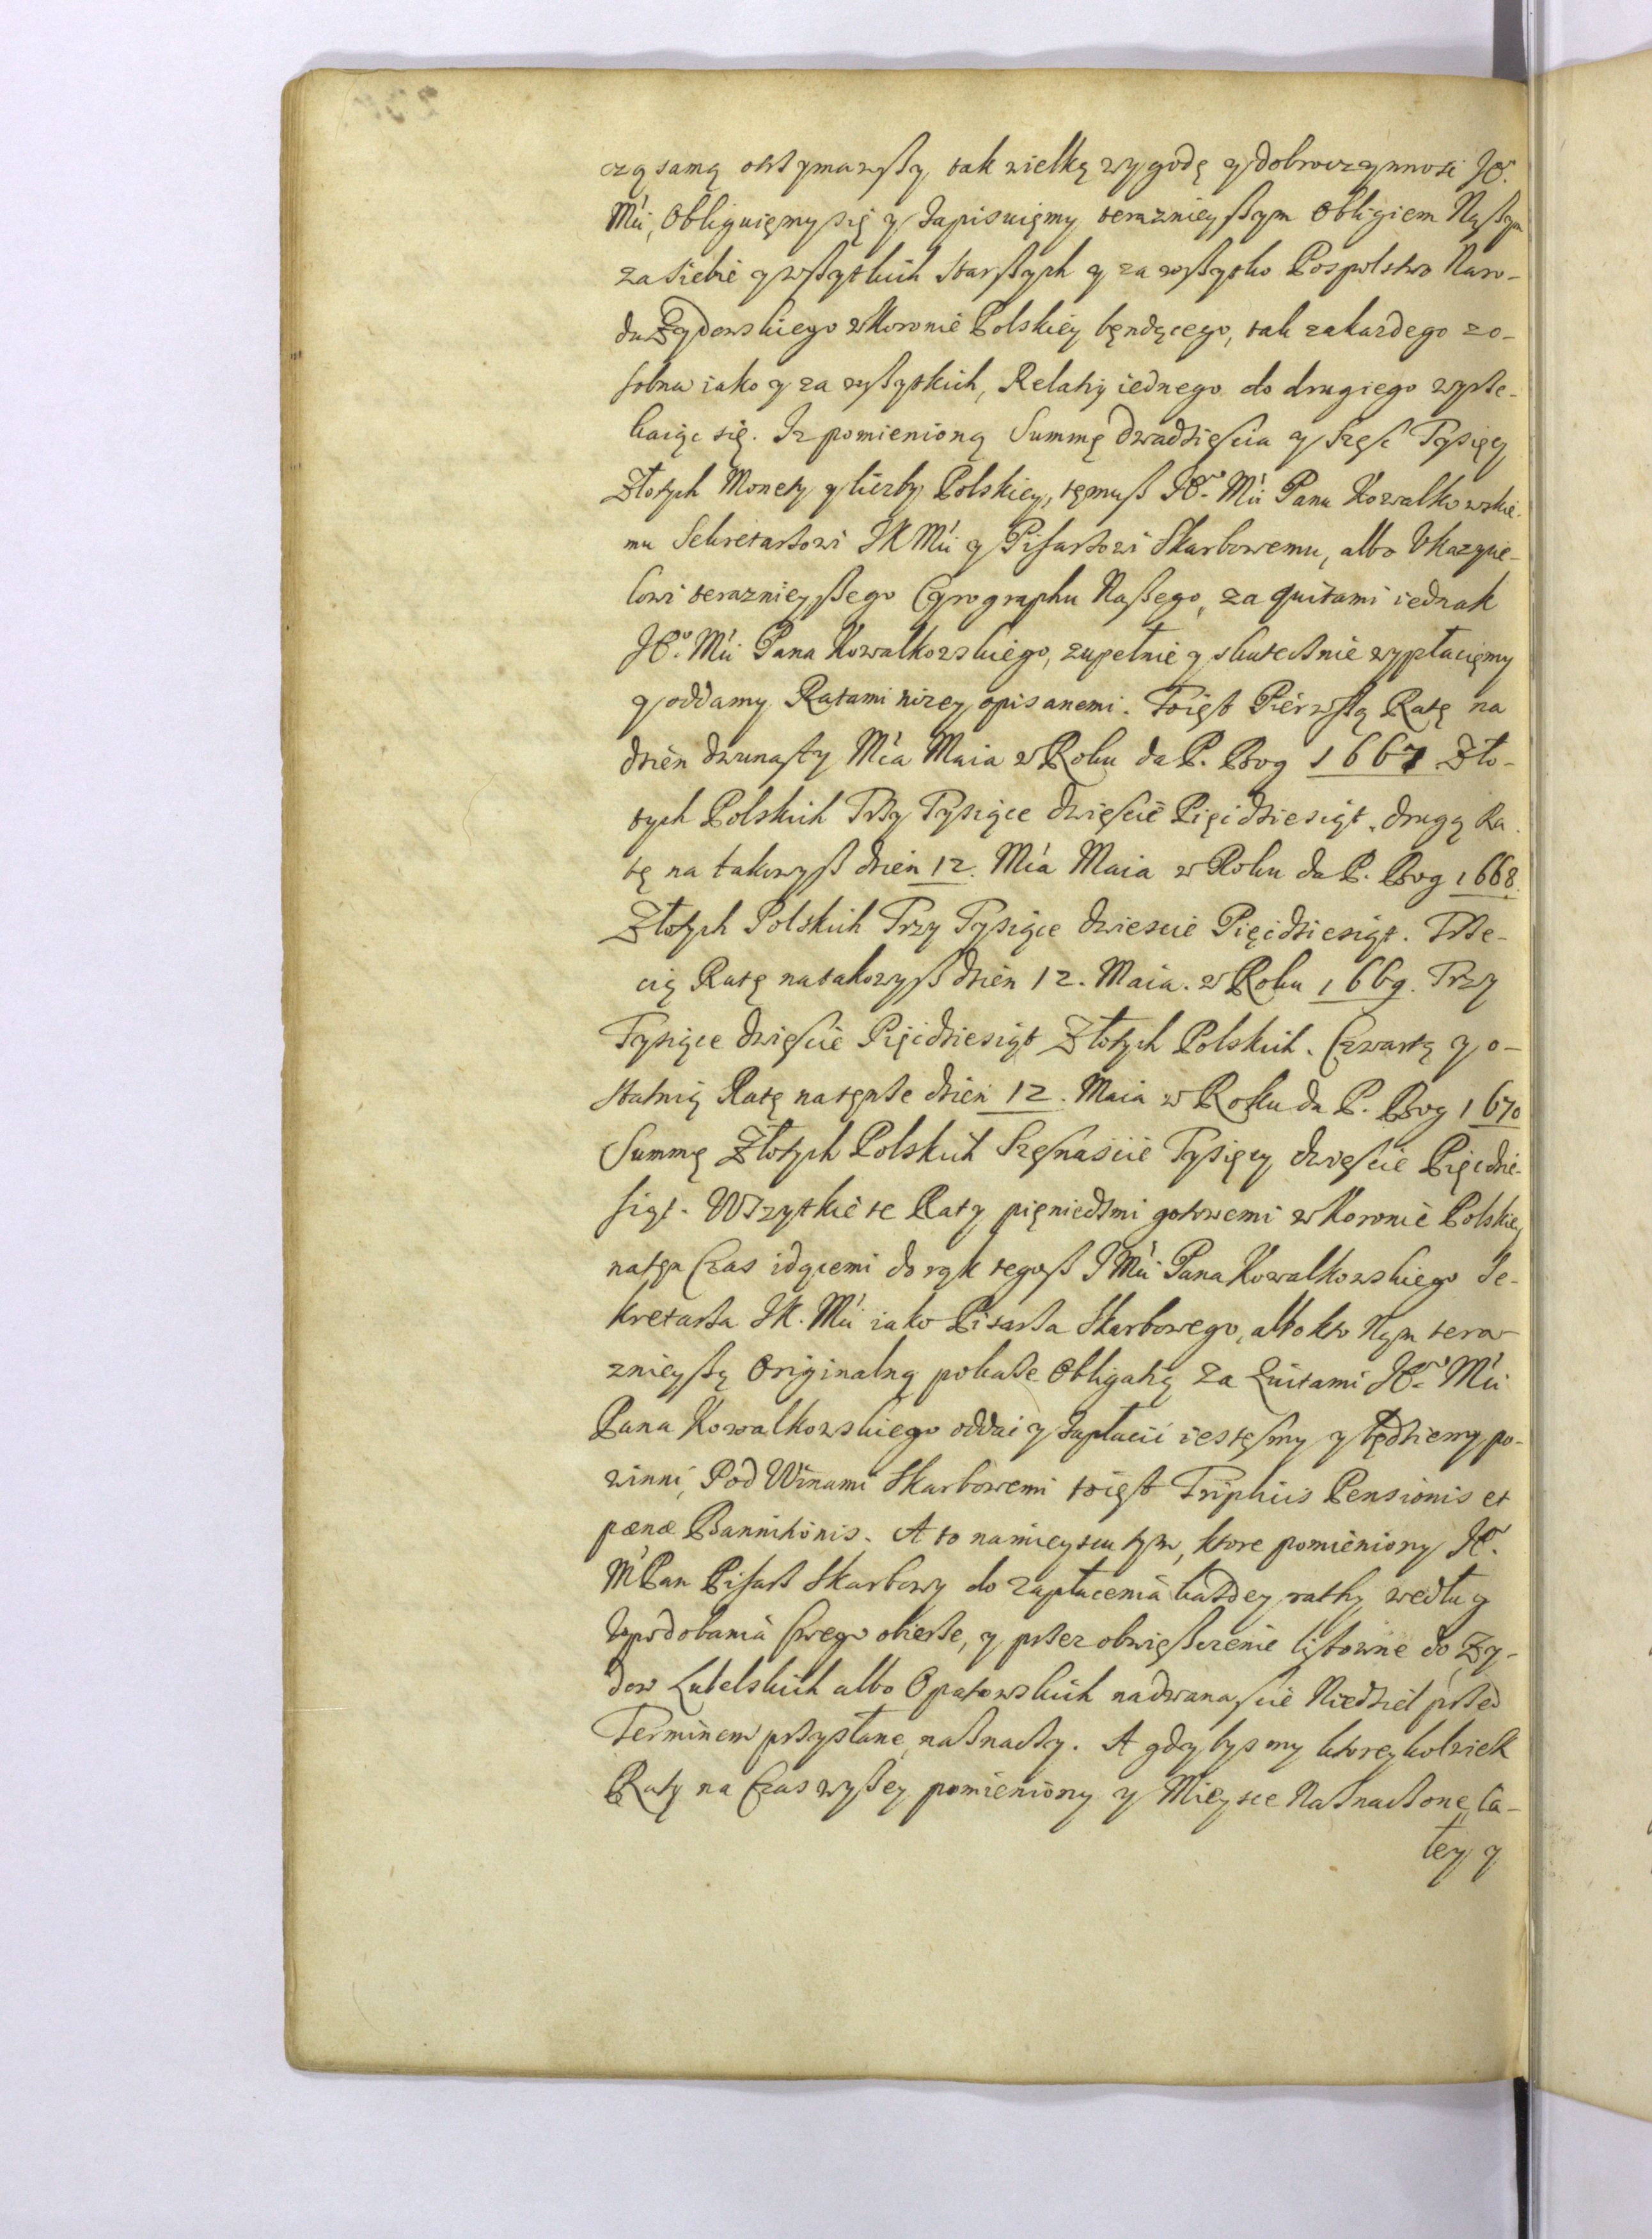 czą samą otrzymawszy, tak wielką wygodę y dobroczynność JE°.
Mći, Obliguięmy się y Zapisuięmy terażnieyßym Obligiem Naßym
za siebie y wßytkich Starßych y za wßytko Pospolstwo Naro-
du Zydowskiego w Koronie Polskiey będącego, tak za każdego zo-
sobna iako y za wßytkich, Relatią iednego do drugiego wyrze-
kaiąc się. Iz pomienioną Summę dwadzieścia y Sześć Tysięcy
Złotych Monety y liczby Polskiey, temuß JE°. Mći Panu Kowalkowskie-
mu Sekretarzowi JK Mći y Pisarzowi Skarbowemu, albo Vkazycie-
lowi terażnieyßego Cyrographu Naßego, za quitami iednak
JE°. Mći Pana Kowalkowskiego, zupełnie y skutecznie wypłacięmy
y oddamy Ratami niżey opisanemi. Toiest Pierwßą Ratę na
dzień dwunasty Mća Maia w Roku da P. Bog 1667 Zło-
tych Polskich Trzy Tysiące dwieście Pięćdziesiąt, drugą Ra-
tę na takowyß dzień 12. Mća Maia w Roku da P. Bog 1668.
Złotych Polskich Trzy Tysiące dwiescie Pięćdziesiąt. Trze-
cią Ratę na takowyß dzień 12. Maia. w Roku 1669. Trzy
Tysiące dwieście Pięćdziesiąt Złotych Polskich. Czwartą y o-
statnią Ratę na tenże dzień 12. Maia w Roku da P. Bog 1670
Summę Złotych Polskich Szesnaście Tysięcy dwieście Pięćdzie-
siąt. Wszytkie te Raty pięniedzmi gotowemi w Koronie Polskiey
na ten Czas idącemi do rąk tegoß J Mći Pana Kowalkowskiego Se-
kretarza JK. Mći iako Pisarza Skarbowego, albo kto Nym tera-
znieyßą Originalną pokaże Obligatią za Quitami JE°. Mći
Pana Kowalkowskiego oddać y Zapłacić iesteśmy y będziemy po-
winni, Pod Winami Skarbowemi toiest Triplicis Pensionis et
pænæ Bannitionis. A to na mieyscu tym, ktore pomieniony JE°.
M Pan Pisarz Skarbowy do zapłacenia każdey rathy według
Vpodobania swego obierze, y przez obwießczenie listowne do Zy-
dow Lubelskich albo Opatowskich na dwanaście Niedziel przed
Terminem przysłane, naznaczy. A gdybysmy ktoreykolwiek
Raty na Czas wyßey pomieniony y Mieysce Naznaczone, Ca-
łey y